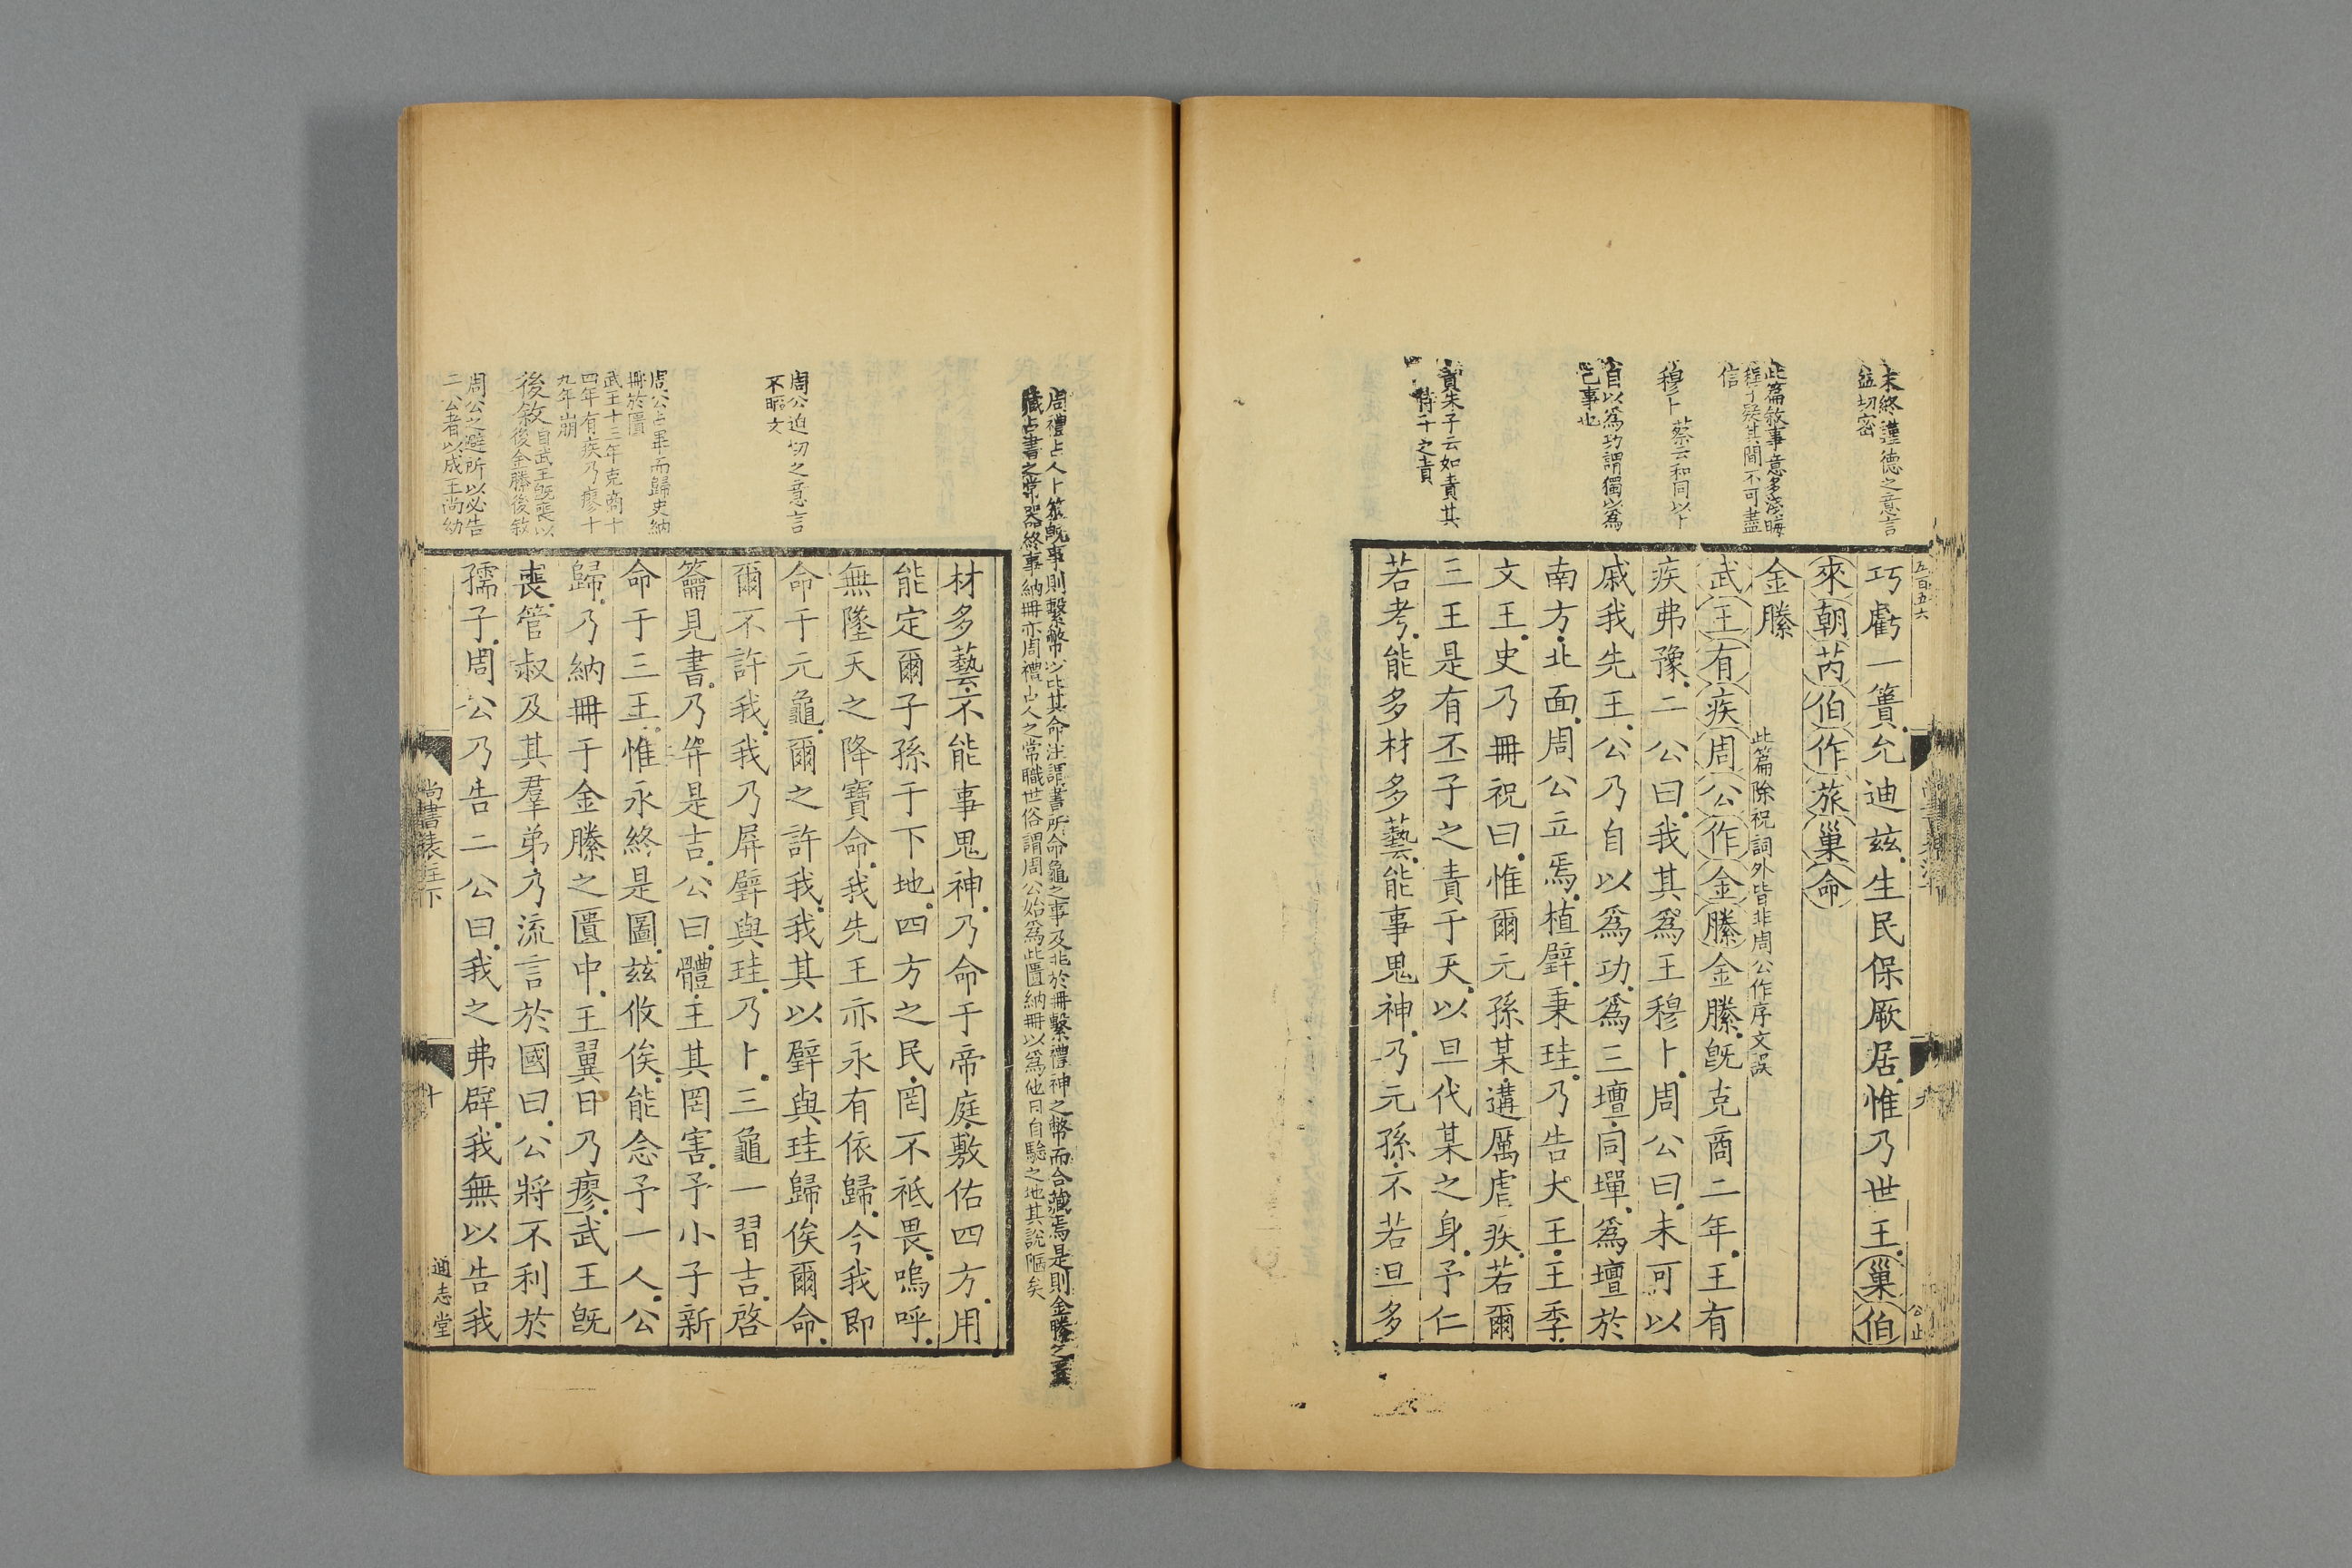 末終謹德之意言
益切密
此篇敘事意多淺晦
程子疑其間不可盡
信
穆卜蔡云和同以卜
自以爲功謂獨以爲
己事也
責朱子云如責其
侍子之責
五百五六
巧虧一簣允迪茲生民保厥居惟乃世王巢伯
來朝芮伯作旅巢命
金縢
此篇除祝詞外皆非周公作序文誤
武王有疾周公作金縢金縢旣克商二年王有
疾弗豫二公曰我其爲王穆卜周公曰未可以
戚我先王公乃自以爲功爲三壇同墠爲壇於
南方北面周公立焉植璧秉珪乃告大王王季
文王史乃冊祝曰惟爾元孫某遘厲虐疾若爾
三王是有丕子之責于天以旦代某之身予仁
若考能多材多藝能事鬼神乃元孫不若旦多
九
周禮占人卜筮旣事則繫幣以比其命注謂書所命龜之事及兆於冊繫禮神之幣而合藏焉是則金縢之
藏占書之常器終事納冊亦周禮占人之常職世俗謂周公始爲此匱納冊以爲他日自驗之地其說陋矣
周公迫切之意言
不暇文
周公占畢而歸史納
冊於匱
武王十三年克商十
四年有疾乃瘳十
九年崩
後敘自武王旣喪以
後金縢後敘
周公之避所以必告
二公者以成王尚幼
材多藝不能事鬼神乃命于帝庭敷佑四方用
能定爾子孫于下地四方之民罔不祗畏嗚呼
無墜天之降寶命我先王亦永有依歸今我即
命于元龜爾之許我我其以璧與珪歸俟爾命
爾不許我我乃屏璧與珪乃卜三龜一習吉啓
籥見書乃幷是吉公曰體王其罔害予小子新
命于三王惟永終是圖茲攸俟能念予一人公
歸乃納冊于金縢之匱中王翼日乃瘳武王旣
喪管叔及其羣弟乃流言於國曰公將不利於
孺子周公乃告二公曰我之弗辟我無以告我
尚書表注下
十
通志堂